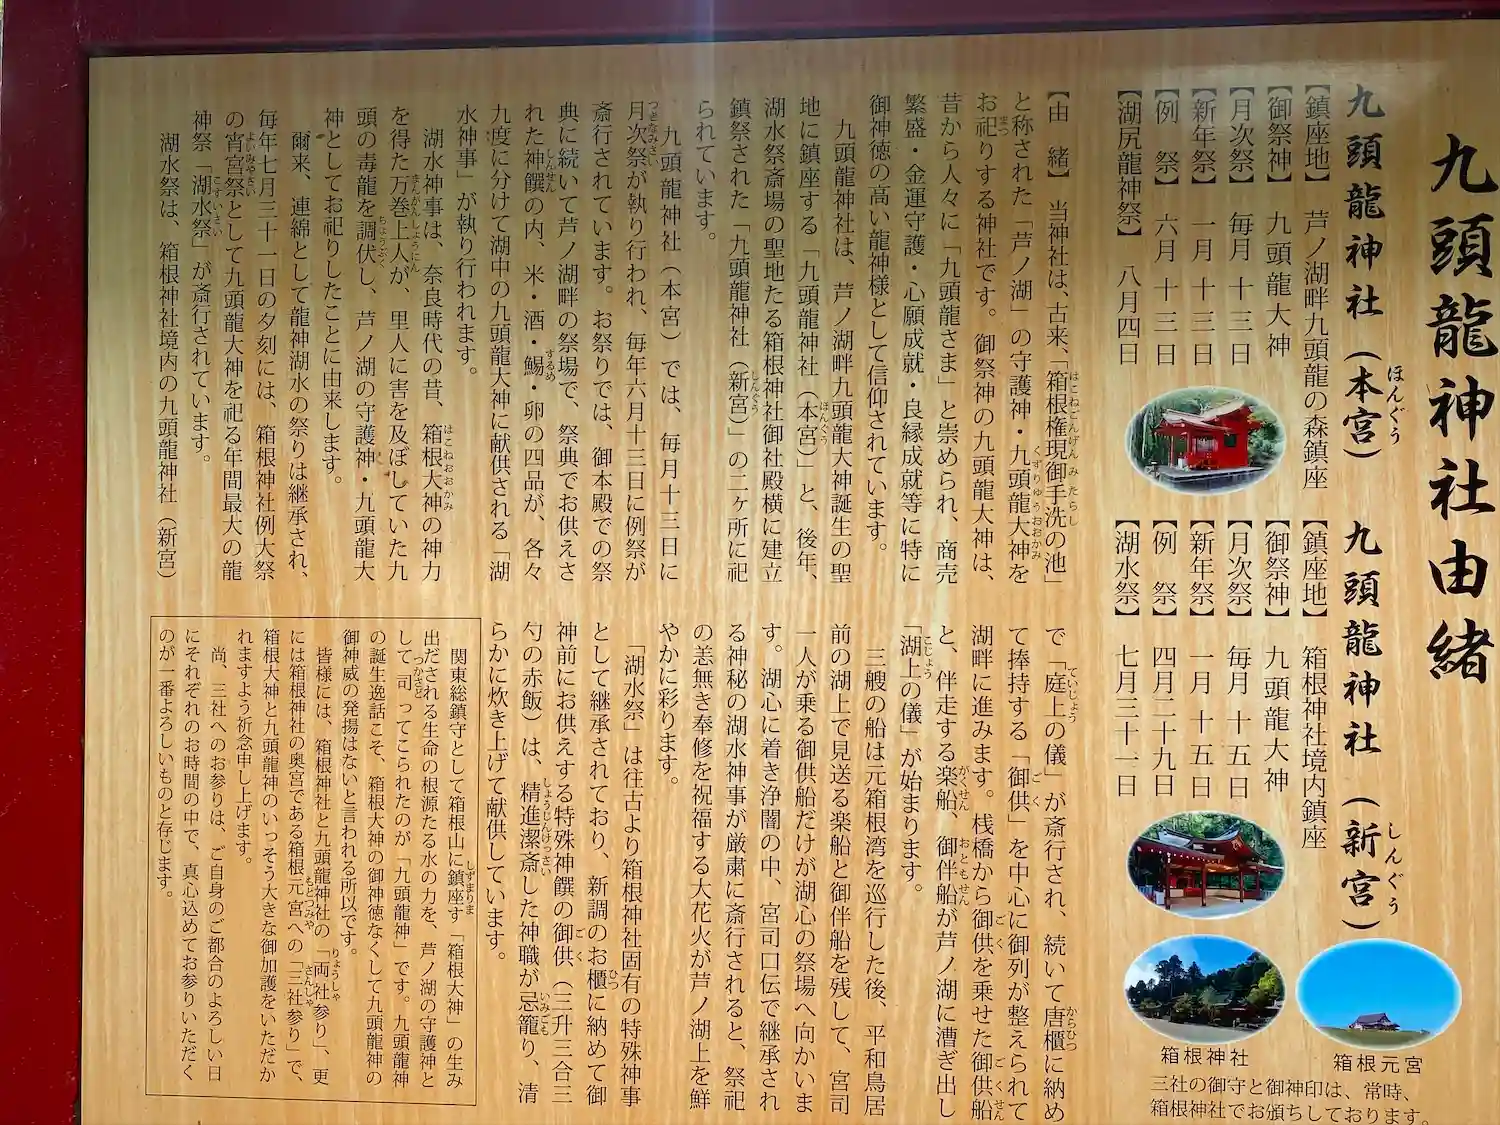 九頭龍神社由緒
九頭龍神社(本宮)
ほんぐう
【鎮座地】 芦ノ湖畔九頭龍の森鎮座
【御祭神】 九頭龍大神
【月次祭】 毎月十三日
【新年祭】 一月十三日
【例 祭】 六月十三日
【湖尻龍神祭】 八月四日
九頭龍神社(新宮)
しんぐう
【鎮座地】 箱根神社境内鎮座
【御祭神】 九頭龍大神
【月次祭】 毎月十五日
【新年祭】 一月十五日
【例 祭】 四月二十九日
【湖水祭】 七月三十一日
箱根神社
箱根元宮
三社の御守と御神印は、常時、
箱根神社でお頒ちしております。
【由 緒】 当神社は、古来、「箱根権現御手洗の池」
はこねごんげん みたらし
と称された「芦ノ湖」の守護神・九頭龍大神を
くずりゅうおおかみ
お祀りする神社です。御祭神の九頭龍大神は、
まつ
昔から人々に「九頭龍さま」と崇められ、商売
繁盛・金運守護・心願成就・良縁成就等に特に
御神徳の高い龍神様として信仰されています。
九頭龍神社は、芦ノ湖畔九頭龍大神誕生の聖
地に鎮座する「九頭龍神社(本宮)」と、後年、
ほんぐう
湖水祭斎場の聖地たる箱根神社御社殿横に建立
鎮祭された「九頭龍神社(新宮)」の二ヶ所に祀
しんぐう
られています。
九頭龍神社(本宮)では、毎月十三日に
月次祭が執り行われ、毎年六月十三日に例祭が
つきなみさい
斎行されています。お祭りでは、御本殿での祭
典に続いて芦ノ湖畔の祭場で、祭典でお供えさ
れた神饌の内、米・酒・鯣・卵の四品が、各々
しんせん するめ
九度に分けて湖中の九頭龍大神に献供される「湖
水神事」が執り行われます。
湖水神事は、奈良時代の昔、箱根大神の神力
はこねおおかみ
を得た万巻上人が、里人に害を及ぼしていた九
まんがんしょうにん
頭の毒龍を調伏し、芦ノ湖の守護神・九頭龍大
ちょうぶく
神としてお祀りしたことに由来します。
爾来、連綿として龍神湖水の祭りは継承され、
毎年七月三十一日の夕刻には、箱根神社例大祭
の宵宮祭として九頭龍大神を祀る年間最大の龍
よいみやさい
神祭「湖水祭」が斎行されています。
こすいさい
湖水祭は、箱根神社境内の九頭龍神社(新宮)
で「庭上の儀」が斎行され、続いて唐櫃に納め
ていじょう からひつ
て捧持する「御供」を中心に御列が整えられて
ごく
湖畔に進みます。桟橋から御供を乗せた御供船
ごく ごくせん
と、伴走する楽船、御伴船が芦ノ湖に漕ぎ出し
がくせん おともせん
「湖上の儀」が始まります。
こじょう
三艘の船は元箱根湾を巡行した後、平和鳥居
前の湖上で見送る楽船と御伴船を残して、宮司
一人が乗る御供船だけが湖心の祭場へ向かいま
す。湖心に着き浄闇の中、宮司口伝で継承され
る神秘の湖水神事が厳粛に斎行されると、祭祀
の恙無き奉修を祝福する大花火が芦ノ湖上を鮮
やかに彩ります。
「湖水祭」は往古より箱根神社固有の特殊神事
として継承されており、新調のお櫃に納めて御
ひつ
神前にお供えする特殊神饌の御供(三升三合三
ごく
勺の赤飯)は、精進潔斎した神職が忌籠り、清
しょうじんけっさい いみごも
らかに炊き上げて献供しています。
関東総鎮守として箱根山に鎮座す「箱根大神」の生み
しずまりま
出だされる生命の根源たる水の力を、芦ノ湖の守護神と
して司ってこられたのが「九頭龍神」です。九頭龍神
つかさど
の誕生逸話こそ、箱根大神の御神徳なくして九頭龍神の
御神威の発揚はないと言われる所以です。
皆様には、箱根神社と九頭龍神社の「両社参り」、更
りょうしゃ
には箱根神社の奥宮である箱根元宮への「三社参り」で、
もとつみや さんしゃ
箱根大神と九頭龍神のいっそう大きな御加護をいただか
れますよう祈念申し上げます。
尚、三社へのお参りは、ご自身のご都合のよろしい日
にそれぞれのお時間の中で、真心込めてお参りいただく
のが一番よろしいものと存じます。